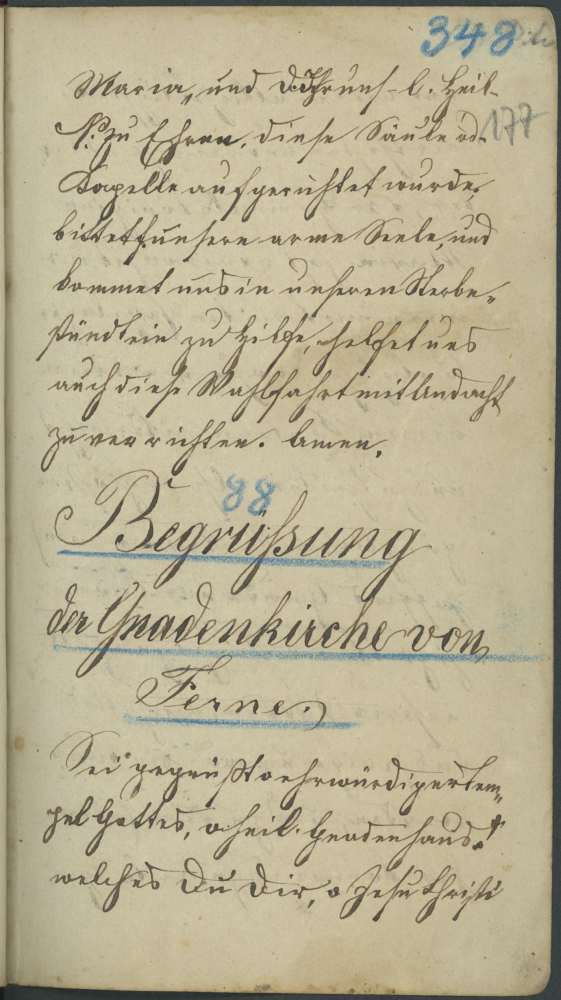 348
177
Maria, und d. Ihr uns l. Heil.
N. zu Ehren, diese Säule od.
Kapelle aufgerichtet wurde,
bittet f. unsere arme Seele, und
kommet uns in unserem Sterbe„
stündlein zu Hilfe, helfet uns
auch diese Wahlfahrt mit Andacht
zu verrichten. Amen.
88
Begrüßung
der Gnadenkirche von
Ferne.
Sei gegrüßt o ehrwürdiger Tem„
pel Gottes, o heil. Gnadenhaus!
welches Du Dir, o Jesu Christi